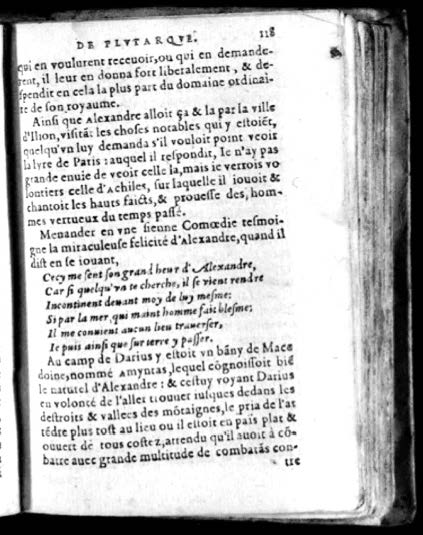 DE PLVTARQVE. 118
qui en voulurent receuoir, ou qui en demande-
rent, il leur en donna fort liberalement, & de-
spendit en cela la plus part du domaine ordinai-
re de son royaume.
Ainsi que Alexandre alloit çà & la par la ville
d'Ilion, visitāt les choses notables qui y estoiēt,
quelqu'vn luy demanda s'il vouloit point veoir
la lyre de Paris: auquel il respondit, Ie n'ay pas
grande enuie de veoir celle la, mais ie verrois vo
lontiers celle d'Achiles, sur laquelle il iouoit &
chantoit les hauts faicts, & prouesse des hom-
mes vertueux du temps passé.
Menander en vne sienne Comœdie tesmoi-
gne la miraculeuse felicité d'Alexandre, quand il
dist en se iouant,
Cecy me sent son grand heur d'Alexandre,
Car si quelqu'vn te cherche, il se vient rendre
Incontinent deuant moy de luy mesme:
Si par la mer, qui maint homme fait blesme;
Il me conuient aucun lieu trauerser,
Ie puis ainsi que sur terre y passer.
Au camp de Darius y estoit vn bāny de Mace
doine, nommé Amyntas, lequel cognoissoit biē
le naturel d'Alexandre: & cestuy voyant Darius
en volonté de l'aller trouuer iusques dedans les
destroits & vallees des mōtaignes, le pria de l'at
tēdre plus tost au lieu ou il estoit en païs plat &
ouuert de tous costez, attendu qu'il auoit à cō-
batre auec grande multitude de combatās con-
tre